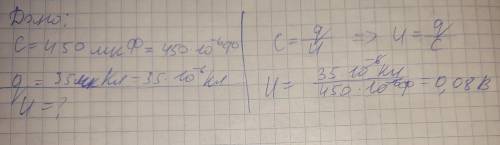 Дано:
C = 450 мкФ = 450·10⁻⁶Ф
q = 35мкКл = 35·10⁻⁶Кл
U = ?
C = q/U => U = q/C
U = 35·10⁻⁶Кл / 450·10⁻⁶Ф = 0,08 В